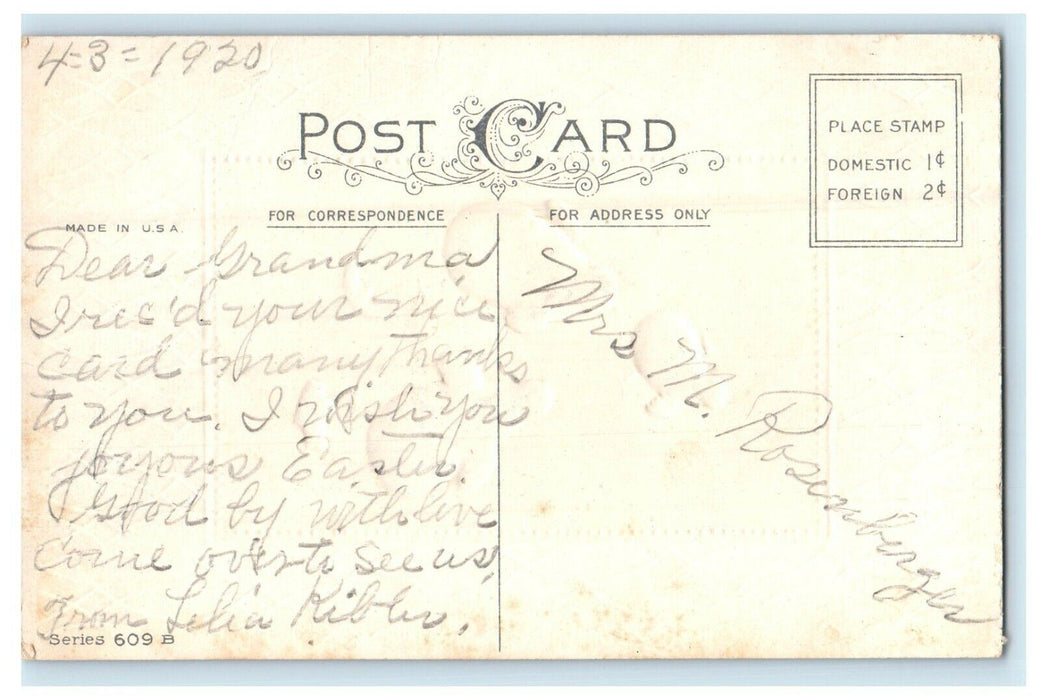 4-3-1920
POST CARD
PLACE STAMP
DOMESTIC 1¢
FOREIGN 2¢
FOR CORRESPONDENCE
FOR ADDRESS ONLY
MADE IN U.S.A.
Dear Grandma
I rec'd your nice
card many thanks
to you. I wish you
joyous Easter.
Good by with love
Come over to see us,
From Lelia
Series 609 B
Mrs M. Rosenberger